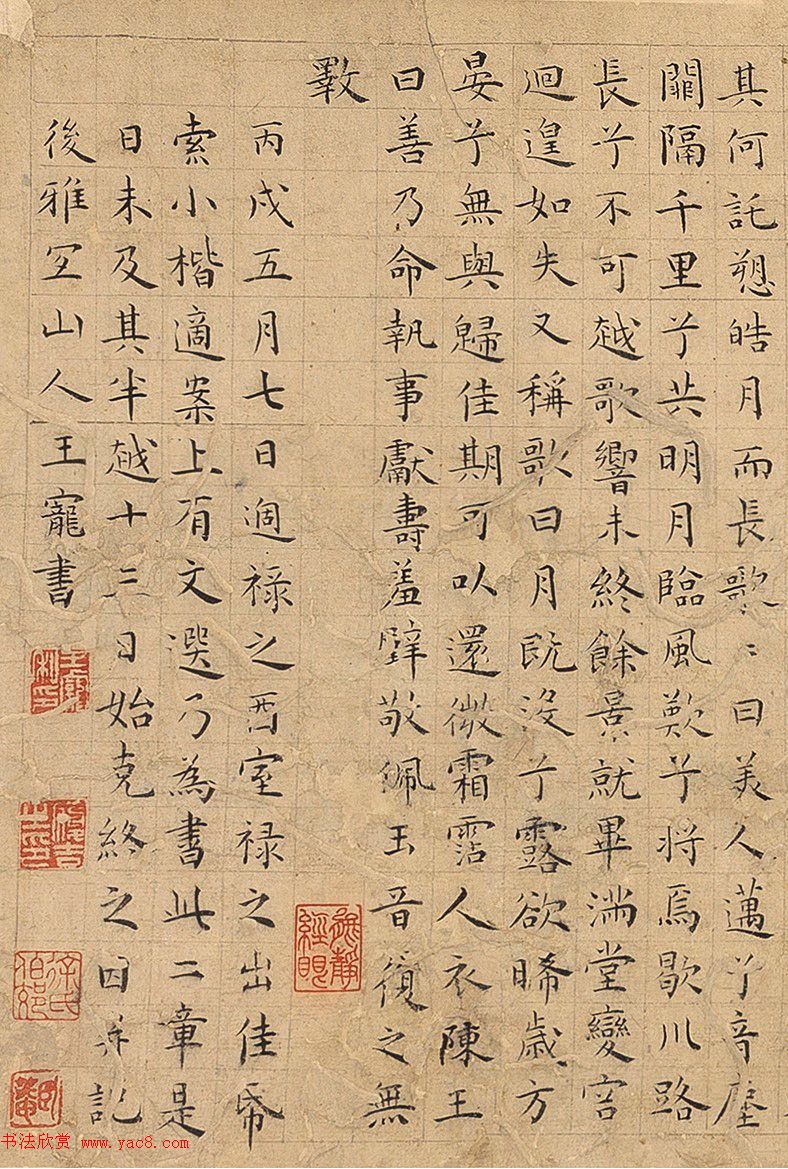 其何託愬皓月而長歌〻曰美人邁兮音塵
闕隔千里兮共明月臨風歎兮將焉歇川路
長兮不可越歌響未終餘景就畢滿堂變容
迴遑如失又稱歌曰月既沒兮露欲晞歲方
晏兮無與歸佳期可以還微霜霑人衣陳王
曰善乃命執事獻壽羞璧敬佩玉音復之無
斁
丙戌五月七日過祿之西室祿之出佳帋
索小楷適案上有文選乃為書此二章是
日未及其半越十三日始克終之因并記
後雅宜山人王寵書
書法欣赏 www.yac8.com